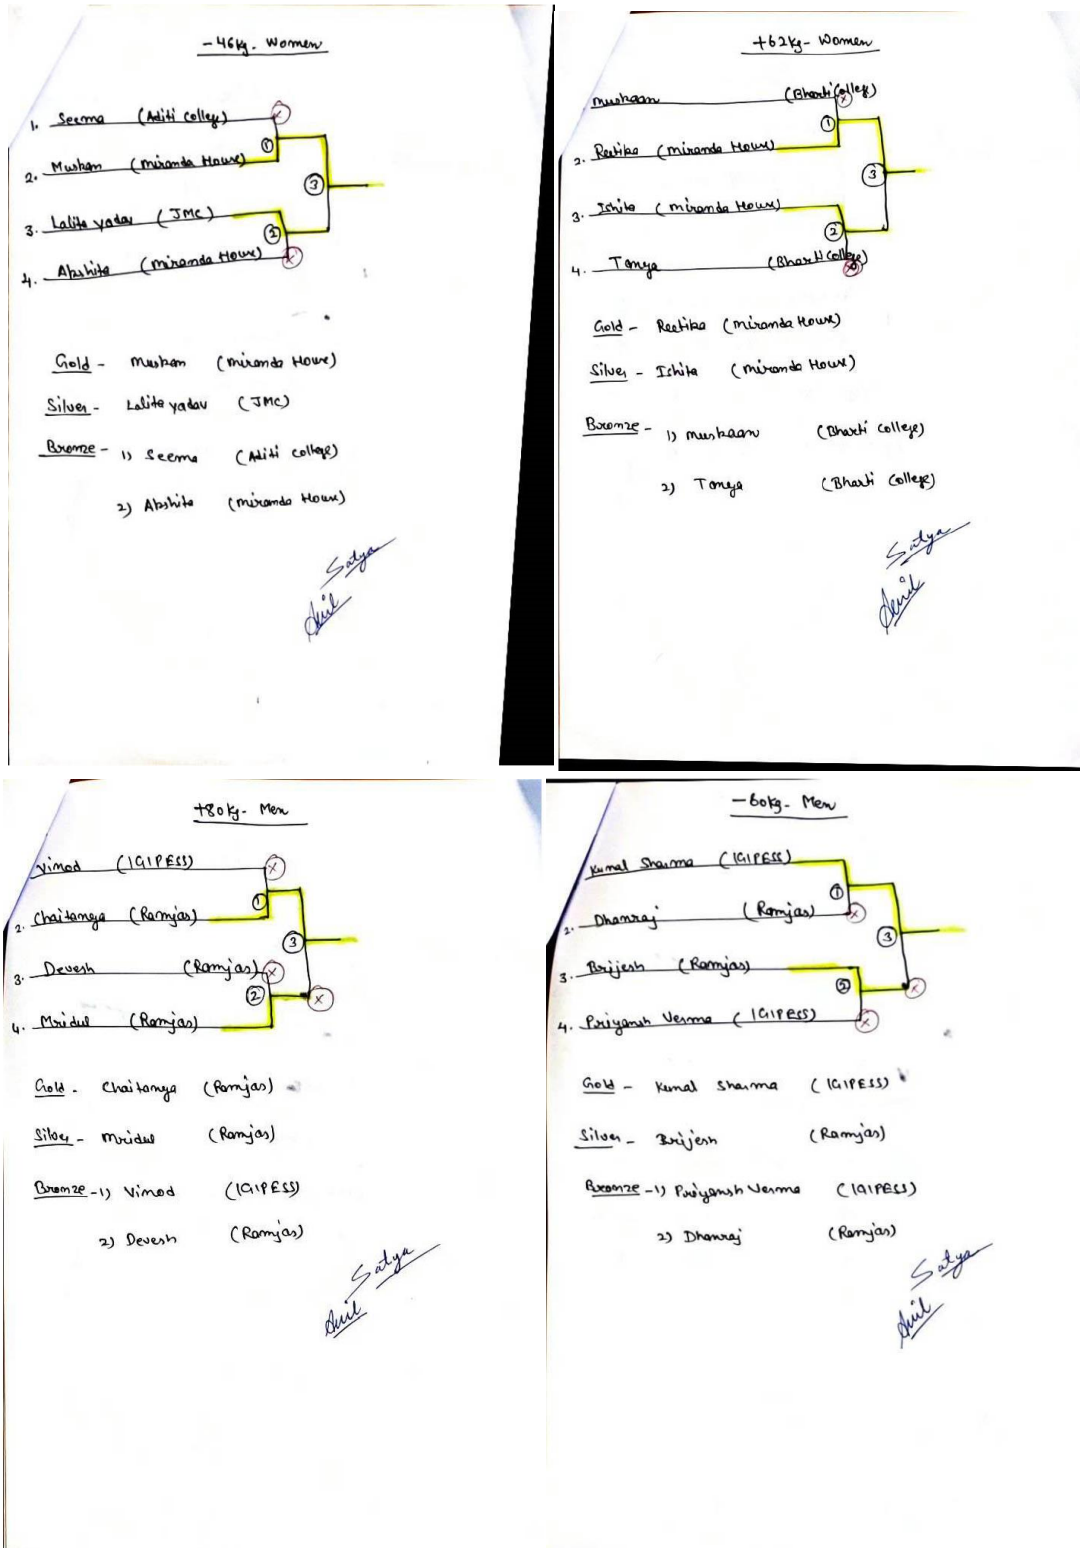 -46kg- Women
1. Seema (Aditi College) X
1
2. Muskan (Miranda House)
3
3. Lalita yadav (JMC)
2
4. Akshita (Miranda House) X
Gold - Muskan (Miranda House)
Silver - Lalita yadav (JMC)
Bronze - 1) Seema (Aditi College)
2) Akshita (Miranda House)
Satya
Anil
+62kg- Women
Muskaan (Bharti College) X
1
2. Reetika (Miranda House)
3
3. Ishita (Miranda House)
2
4. Tanya (Bharti College) X
Gold - Reetika (Miranda House)
Silver - Ishita (Miranda House)
Bronze - 1) Muskaan (Bharti College)
2) Tanya (Bharti College)
Satya
Anil
+80kg- Men
Vinod (IGIPESS) X
1
2. Chaitanya (Ramjas)
3
3. Devesh (Ramjas) X
2 X
4. Mridul (Ramjas)
Gold - Chaitanya (Ramjas)
Silver - Mridul (Ramjas)
Bronze - 1) Vinod (IGIPESS)
2) Devesh (Ramjas)
Satya
Anil
-60kg- Men
Kunal Sharma (IGIPESS)
1
2. Dhanraj (Ramjas) X
3
3. Brijesh (Ramjas)
2 X
4. Priyansh Verma (IGIPESS) X
Gold - Kunal Sharma (IGIPESS)
Silver - Brijesh (Ramjas)
Bronze - 1) Priyansh Verma (IGIPESS)
2) Dhanraj (Ramjas)
Satya
Anil